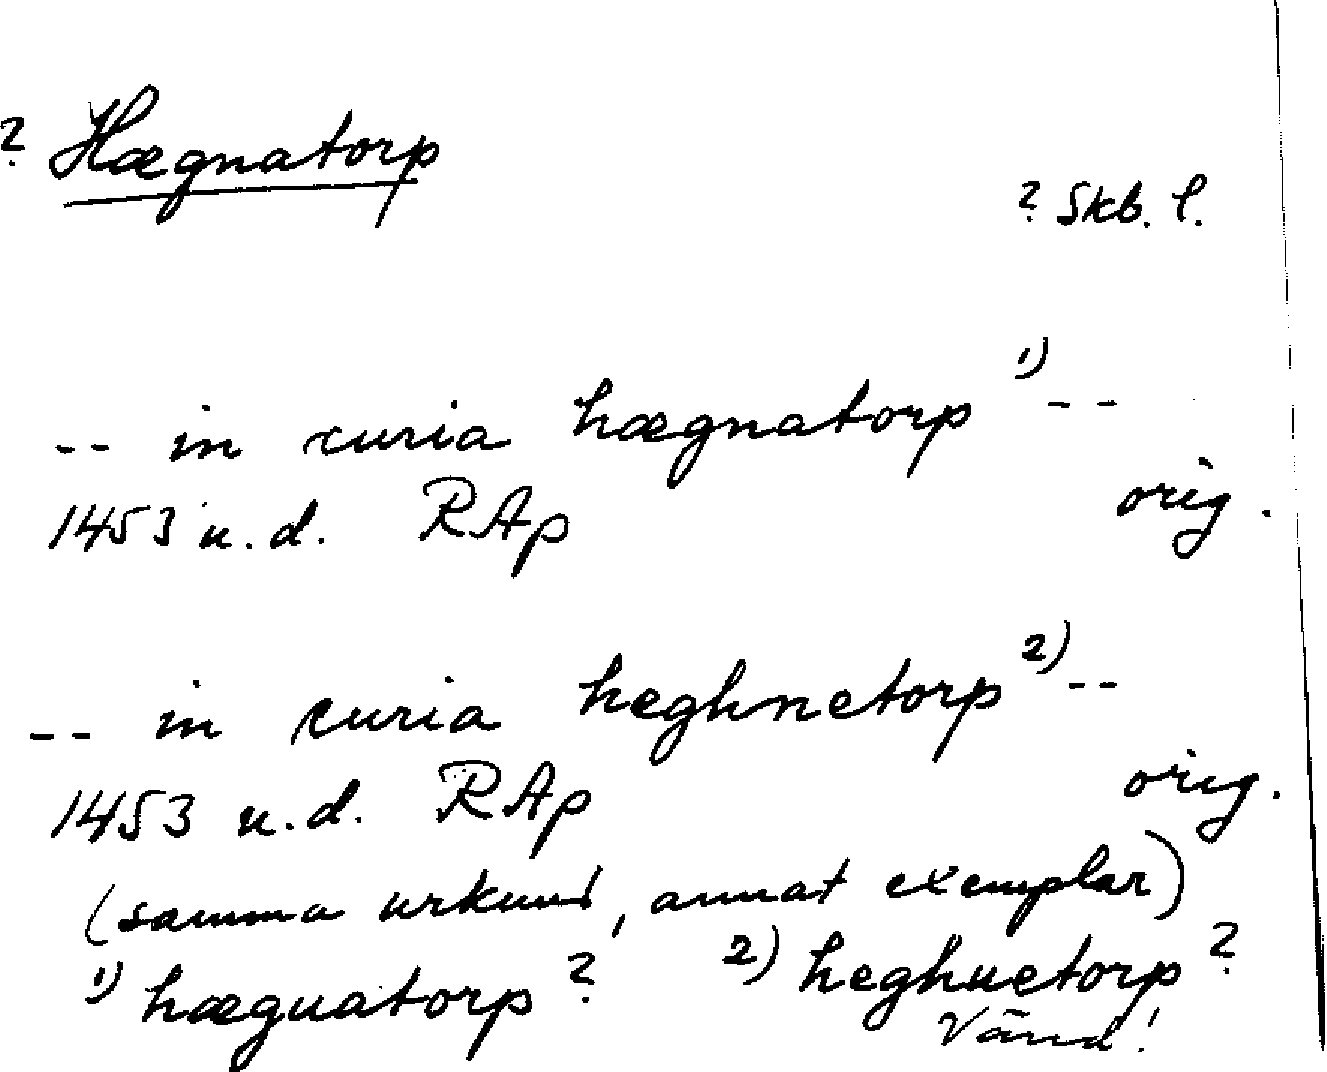 ? Hægnatorp
? Skb. l.
-- in curia hægnatorp 1) --
1453 u.d. RAp orig.
-- in curia heghnetorp 2) --
1453 u.d. RAp orig.
(samma urkund, annat exemplar)
1) hæguatorp? 2) heghuetorp?
Vänd!